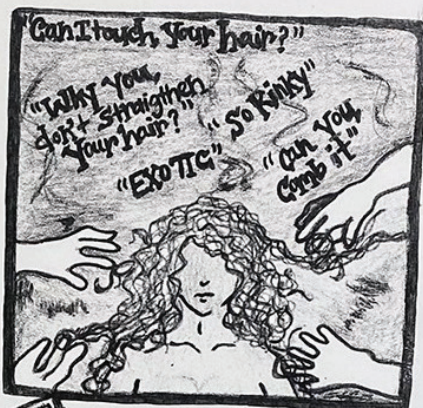 "Can I touch, your hair?"
"Why You,
don't Straigthen
Your hair?"
"So Kinky"
"EXOTIC"
"Can you
Comb it"